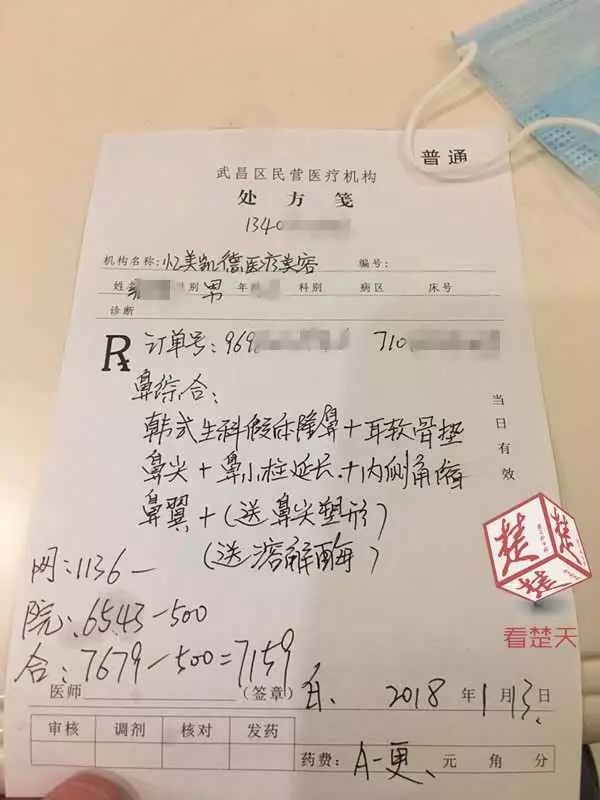 普通
武昌区民营医疗机构
处方笺
1340
机构名称:忆美凯德医疗美容 编号:
姓 别 男 年 科别 病区 床号
诊断
R 订单号:969 710
鼻综合:
韩式生科假体隆鼻+耳软骨垫
鼻尖+鼻小柱延长+内侧角缩
鼻翼+(送鼻尖塑形)
(送溶解酶)
当日有效
楚
楚
看楚天
网:1136一
院:6543-500
合:7679-500=7159
医师 (签章) 2018年1月13日
审核 调剂 核对 发药
药费: A-更、元 角 分